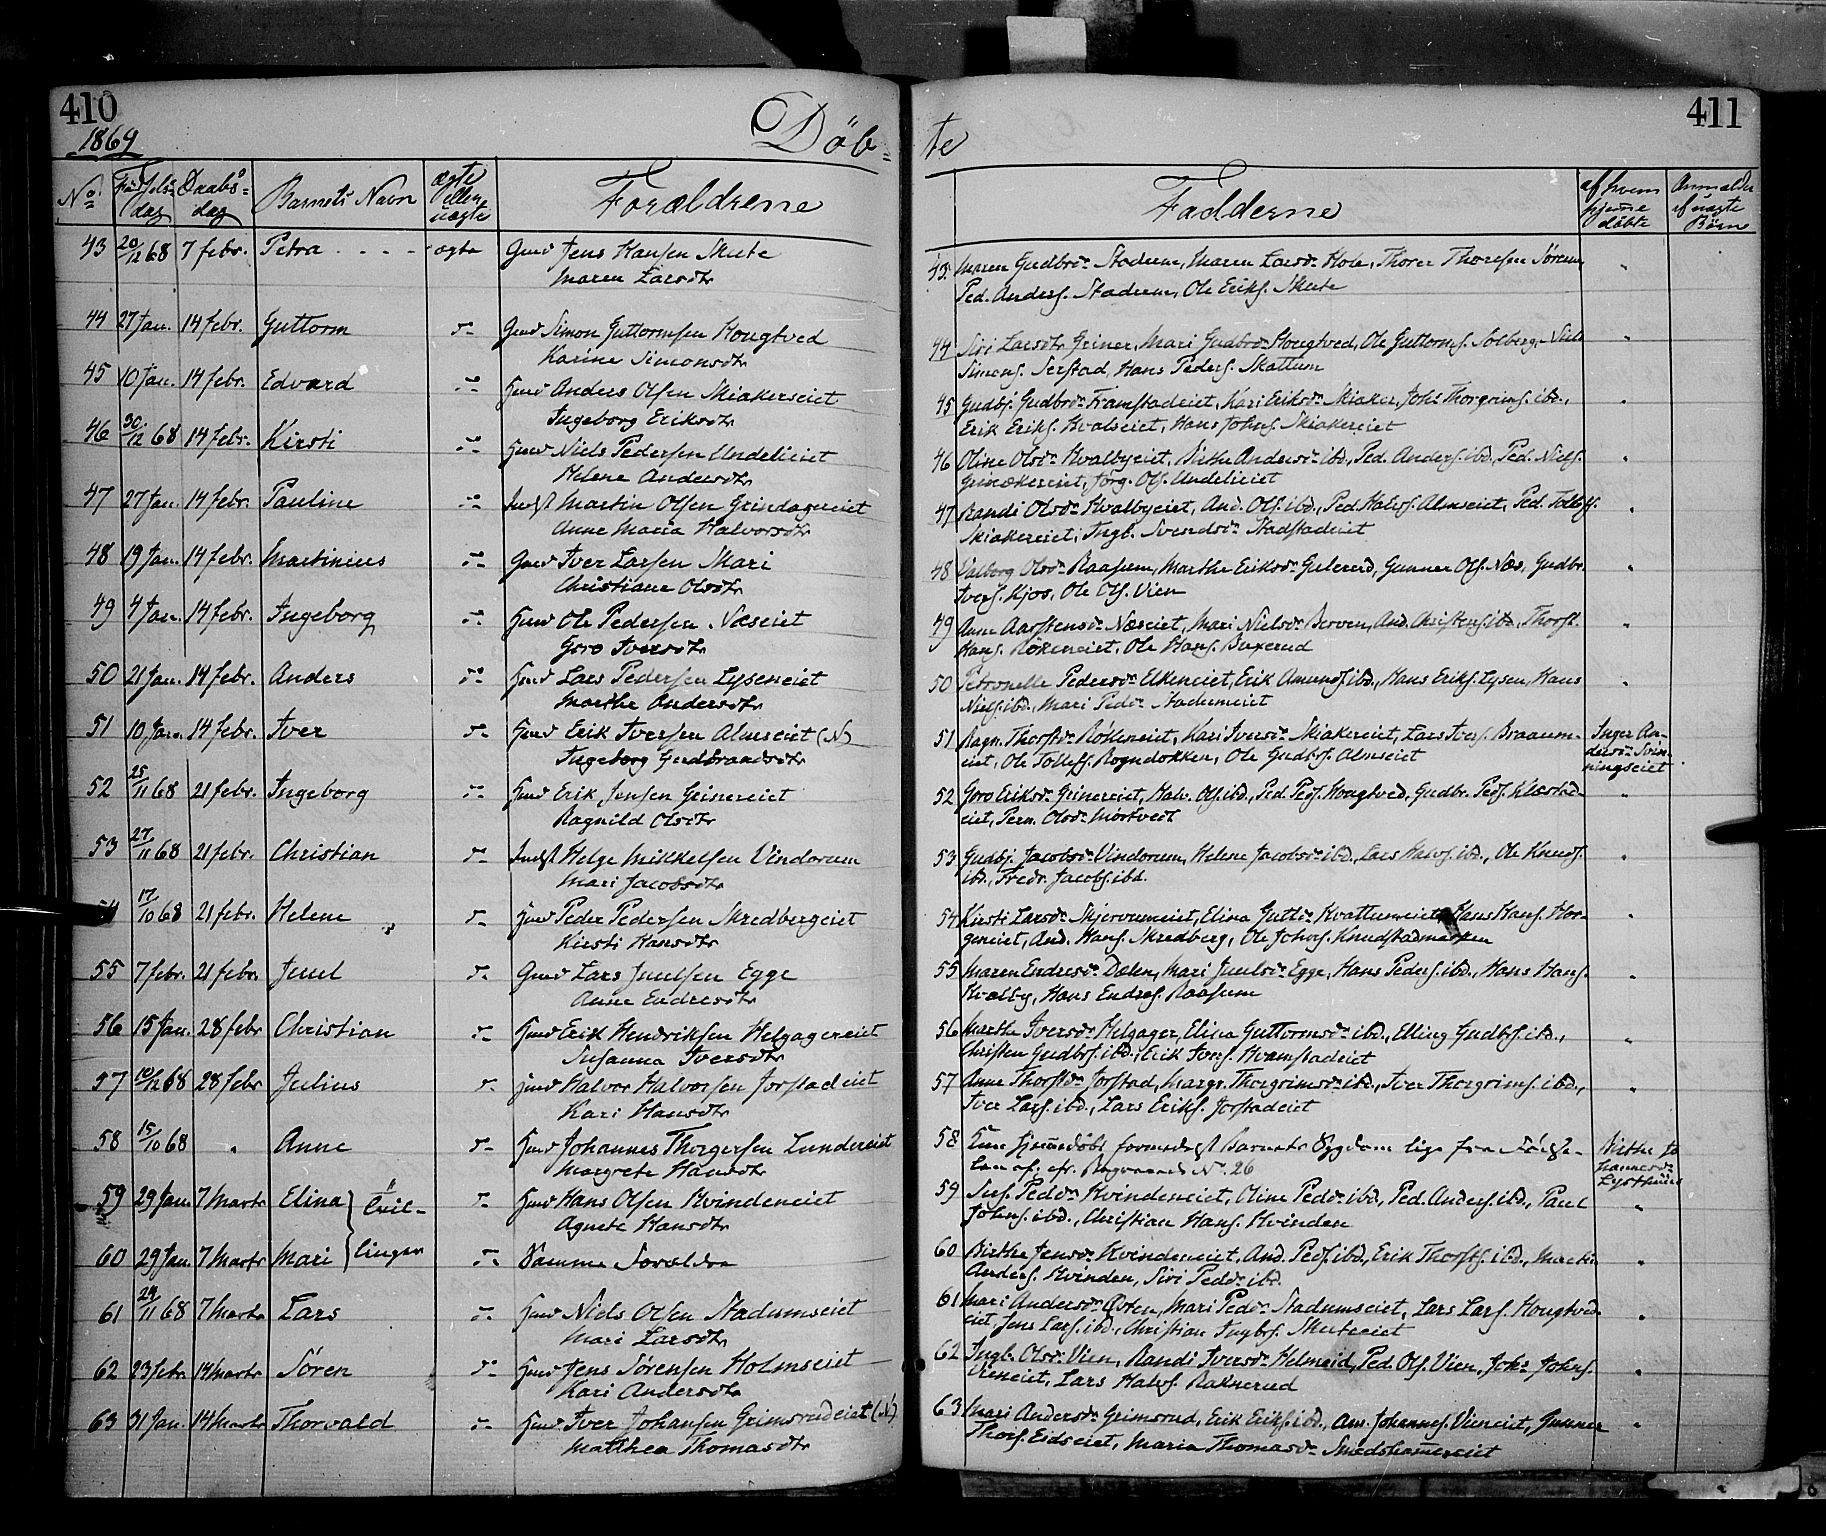 410
1869
Döb-
No
Fødselsdag
Daabsdag
Barnets Navn
ægte eller uægte
Forældrene
43 20/12 68 7 febr. Petra - - - ægte Gmd Jens Hansen Skute
Maren Larsdtr
44 27 Jan. 14 febr. Guttorm Gmd Simon Guttormsen Hougtved
Karine Simonsdtr
45 10 Jan. 14 febr. Edvard Hmd Anders Olsen Miakerseiet
Ingeborg Eriksdtr
46 30/12 68 14 febr. Kirsti Hmd Niels Pedersen Undelieiet
Helene Andersdtr
47 27 Jan. 14 febr. Pauline Indst Martin Olsen Grindagereiet
Anne Maria Halvorsdtr
48 19 Jan. 14 febr. Martinius Gmd Iver Larsen Mari
Christiane Olsdtr
49 4 Jan. 14 febr. Ingeborg Hmd Ole Pedersen Næseiet
Goro Iversdtr
50 21 Jan. 14 febr. Anders Hmd Lars Pedersen Lyseneiet
Marthe Andersdtr
51 10 Jan. 14 febr. Iver Hmd Erik Iversen Almseiet (N)
Ingeborg Gudbrandsdtr
52 25/11 68 21 febr. Ingeborg Hmd Erik Jensen Grinereiet
Ragnild Olsdtr
53 27/11 68 21 febr. Christian Indst Helge Mikkelsen Vindorum
Mari Jacobsdtr
54 17/10 68 21 febr. Helene Hmd Peder Pedersen Skredbergeiet
Kirsti Hansdtr
55 7 febr. 21 febr. Juul Gmd Lars Juulsen Egge
Anne Endresdtr
56 15 Jan. 28 febr Christian Hmd Erik Hendriksen Helgagereiet
Susanna Iversdtr
57 10/12 68 28 febr Julius Hmd Halvor Halvorsen Jorstadeiet
Kari Hansdtr
58 15/10 68 " Anne Hmd Johannes Thorgersen Lundereiet
Margrete Hansdtr
59 29 Jan. 7 Marts Elina } Tvil- Hmd Hans Olsen Hvindeneiet
Agnete Hansdtr
60 29 Jan. 7 Marts Mari } linger Samme Forældre
61 29/11 68 7 Marts Lars Hmd Niels Olsen Stadumseiet
Mari Larsdtr
62 23 febr. 14 Marts Sören Hmd Jens Sörensen Holmseiet
Kari Andersdtr
63 31 Jan. 14 Marts Thorvald Hmd Iver Johansen Grimsrudeiet (N)
Matthea Thomasdtr
411
te
Fadderne
af hvem hjemmedöbte
Anmelder af uægte Börn
43. Maren Gudbrdr Stadum, Maren Larsdr Hole, Thorer Thoresen Sörum
Ped. Anders. Stadum, Ole Eriks. Skute
44 Siri Larsdtr Griner, Mari Gudbrdr Hougtved, Ole Guttorms. Solberg, Niels
Simens. Serstad, Hans Peders. Skattum
45 Gudbj. Gudbrdr Framstadeiet, Kari Eriksdr Miaker, Johs Thorgrims. ibd.,
Erik Eriks. Hvalseiet, Hans Johns. Miakereiet
46 Oline Olsdr Hvalbyeiet, Birthe Andersdr ibd., Ped. Anders. ibd., Ped. Niels.
Grinakereiet, Jörg. Ols. Undelieiet
47 Randi Olsdr Hvalbyeiet, And. Ols. ibd., Ped. Halvs. Almseiet, Ped. Tollefs.
Miakereiet, Ingb. Svendsdr Stadstadeiet
48 Valborg Olsdr Raasum, Marthe Eriksdr Gulerud, Gunner Ols. Næs, Gudbr.
Ivers. Kjos, Ole Ols. Vien
49 Anne Aarstensdr Næseiet, Mari Nielsdr Berven, And. Christens. ibd., Thorst.
Hans. Rökeneiet, Ole Hans. Buxerud
50 Petronelle Pedersdr Elkeneiet, Erik Amunds. ibd., Hans Eriks. Lysen, Hans
Niels. ibd., Mari Pedsdr Stadumeiet
51 Ragn. Thorstdr Rökeneiet, Kari Iversdr Miakereiet, Lars Ivers. Braaum-
eiet, Ole Tollefs. Rogndokken, Ole Gudbrs. Almseiet
Inger An-
dersdr Svin-
ningseiet
52 Goro Eriksdr Grinereiet, Halv. Ols. ibd., Ped. Peds. Hougtved, Gudbr. Peds. Klæstad-
eiet, Pern. Olsdr Mortvedt
53 Gudbj. Jacobsdr Vindorum, Helene Jacobsdr ibd., Lars Halvs. ibd., Ole Knuds.
ibd., Fredr. Jacobs. ibd.
54 Kirsti Larsdr Skjervumeiet, Elina Guttdr Hvattumeiet, Hans Hans. Hor-
geneiet, And. Hans. Skredberg, Ole Johns. Knudstadmarken
55 Maren Endresdr Dælen, Mari Juulsdr Egge, Hans Peders. ibd., Hans Hans.
Hvalby, Hans Endres. Raasum
56 Marthe Iversdr Helgager, Elina Guttormsdr ibd., Elling Gudbrs. ibd.,
Christen Gudbrs. ibd., Erik Ivers. Framstadeiet
57 Anne Thorstdr Jorstad, Margr. Thorgrimsdr ibd., Iver Thorgrims. ibd.,
Iver Lars. ibd., Lars Eriks. Jorstadeiet
58 Kun hjemmedöbt formedelst Barnets Sygdom lige fra
af, cfr. No. 26
Birthe Jo
hannesdr
59 Pedsdr Hvindeneiet, Oline Pedsdr ibd., Ped. Anders. ibd., Paul
Johns. ibd., Christian Hans. Hvinden
60 Birthe Jensdr Hvindeneiet, And. Peds. ibd., Erik Thorsts. ibd., Martin
Anders. Hvinden, Siri Pedsdr ibd.
61 Mari Andersdr Östen, Mari Pedsdr Stadumseiet, Lars Lars. Hougtved-
eiet, Jens Lars. ibd., Christian Ingbrs. Skuteeiet
62 Ingb. Olsdr Vien, Randi Iversdr Helmeid, Ped. Ols. Vien, Johs Johns.
Vieneiet, Lars Halvs. Raknerud
63 Mari Andersdr Grimsrud, Erik Eriks. ibd., Johannes. Vieneiet, Gunner
Thors. Eidseiet, Maria Thomasdr Smedshammereiet